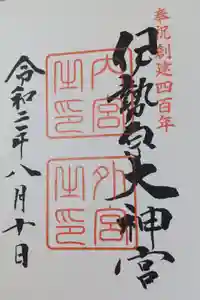 奉祝創建四百年
伊勢原大神宮
内宮之印
外宮之印
令和二年八月十日